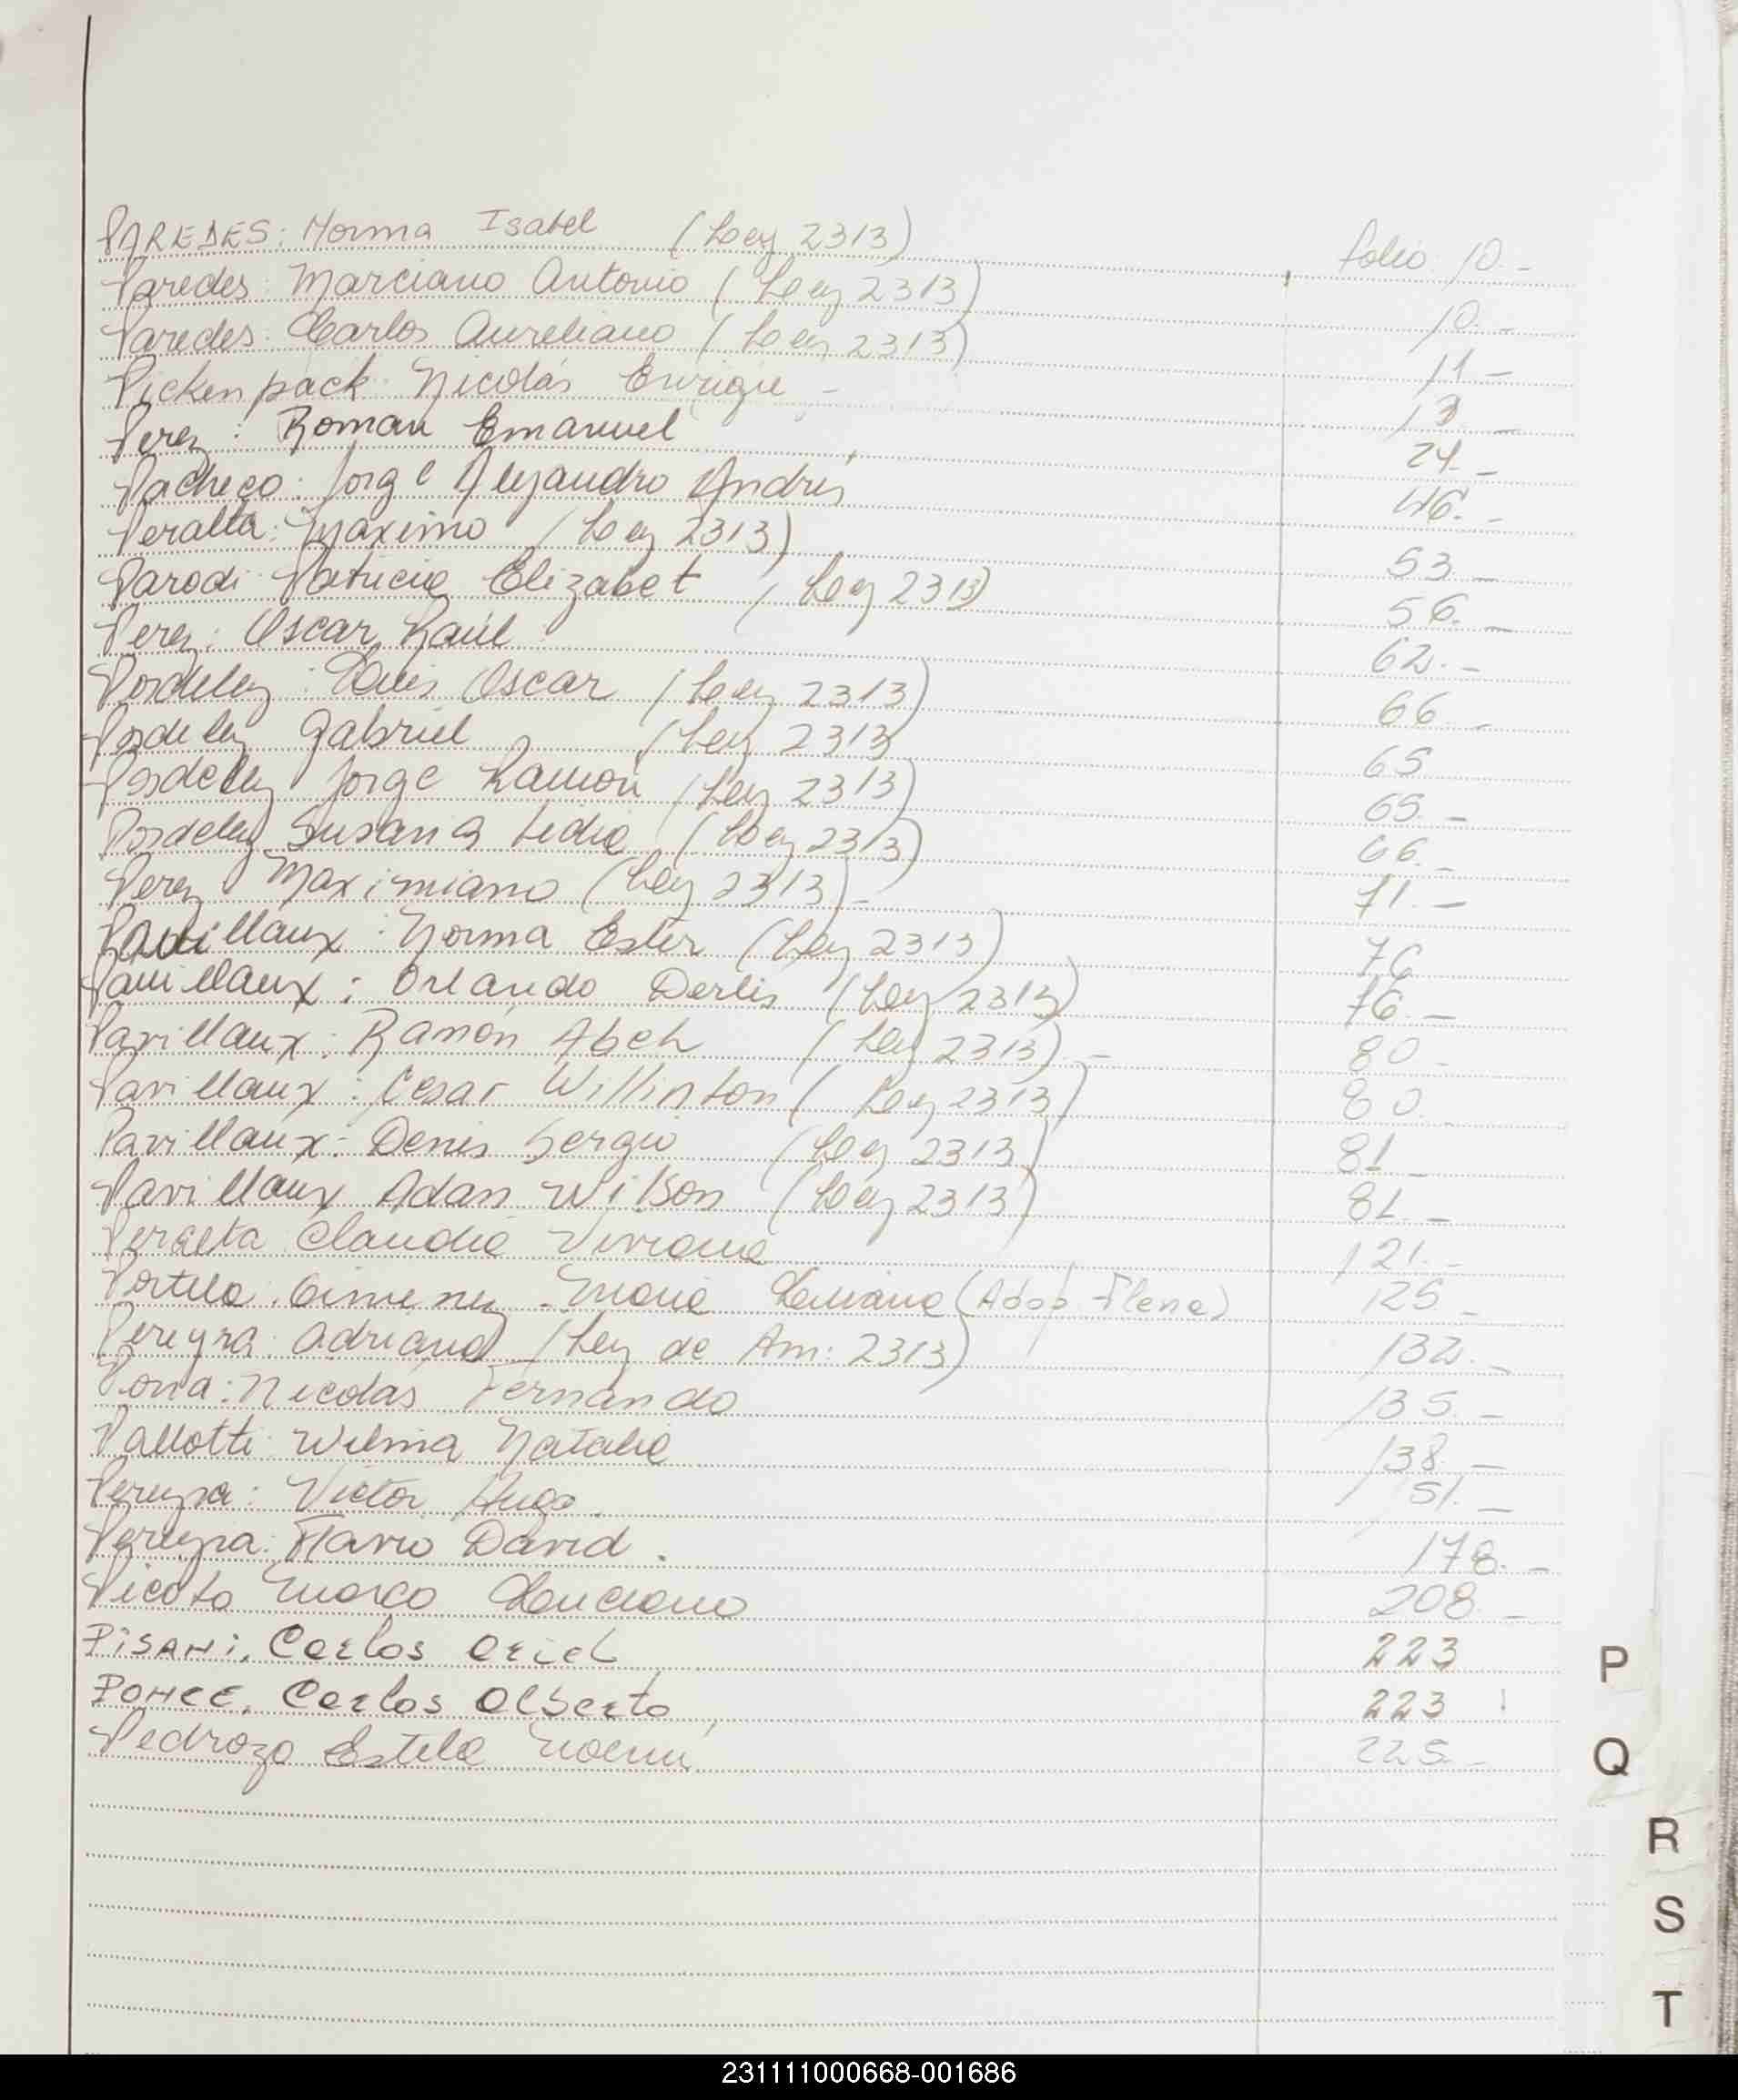 PAREDES: Norma Isabel (Ley 2313) folio 10.-
Paredes: Marciano Antonio (Ley 2313) 10.-
Paredes: Carlos Aureliano (Ley 2313) 11-
Pickenpack: Nicolás Enrique - 13-
Perez: Roman Emanuel 24.-
Pacheco: Jorge Alejandro Andrés 46.-
Peralta: Maximo (Ley 2313) 53.-
Parodi: Patricia Elizabet (Ley 2313) 56.-
Perez: Oscar Raúl 62.-
Pordeley: Luis Oscar (Ley 2313) 66.-
Pordeley Gabriel (Ley 2313 65
Pordeley Jorge Ramón (Ley 2313) 65.-
Pordeley Susana Lidia (Ley 2313) 66.-
Perez Maximiano (Ley 2313)- 71.-
Pavillaux: Norma Ester (Ley 2313) 76
Pavillaux: Orlando Derlis (Ley 2313) 76.-
Pavillaux: Ramón Abel (Ley 2313).- 80-
Pavillaux: Cesar Willinton (Ley 2313) 80.
Pavillaux: Denis Sergio (Ley 2313) 81-
Pavillaux Adan Wilson (Ley 2313) 81.-
Peralta Claudia Viviana 121.-
Portela: Gimenez - Maria Luciana (Adop. Plena) 125-
Pereyra: Adriana (Ley de Am: 2313) 132.-
Nicolás Fernando 135.-
Pallotti: Wilma Natalia 138.-
Pereyra: Victor Hugo. 151.-
Pereyra: Flavio David. 178.-
Picoto Marco Luciano 208.-
PiSANi, Carlos Ariel 223
PONCE, Carlos Alberto, 223
Pedrozo Estela Noemí 225.-
P
Q
R
S
T
231111000668-001686